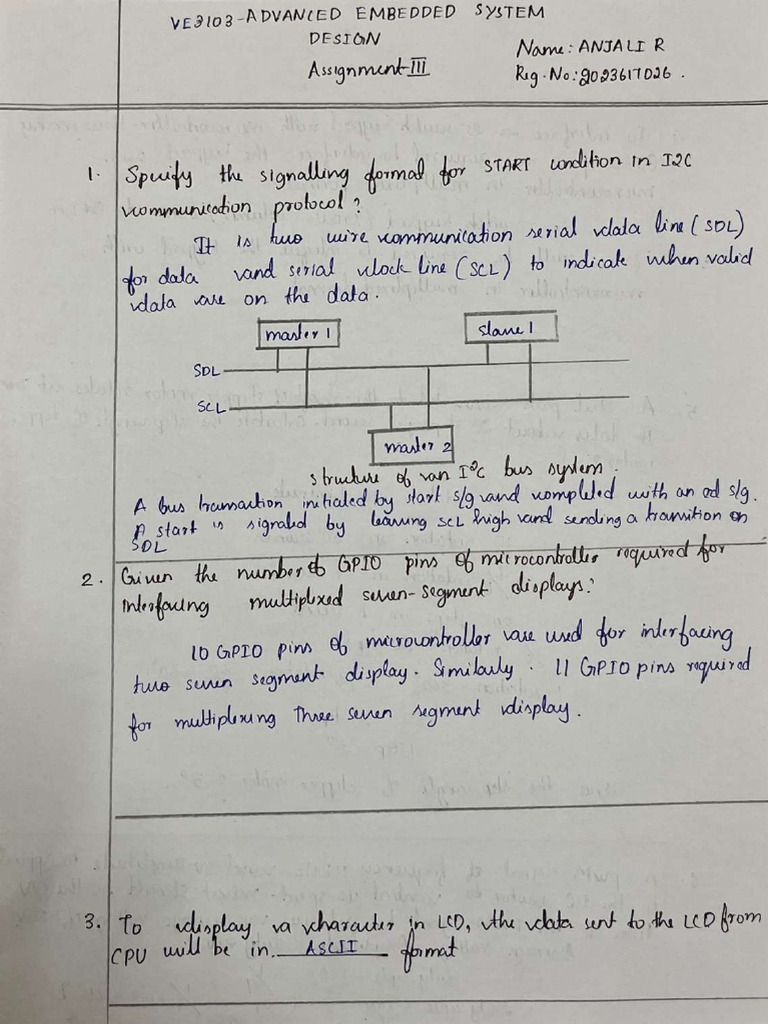 VE3103-ADVANCED EMBEDDED SYSTEM
DESIGN
Assignment-III
Name: ANJALI R
Reg.No:2023617026.
1. Specify the signalling format for START condition in I2C
communication protocol?
It is two wire communication serial data line (SDL)
for data and serial clock line (SCL) to indicate when valid
data are on the data.
master 1
slave 1
SDL
SCL
master 2
structure of an I²C bus system.
A bus transaction initiated by start s/g and completed with an od s/g.
A start is signaled by leaving SCL high and sending a transition on
SDL
2. Given the number of GPIO pins of microcontroller required for
interfacing multiplexed seven-segment displays?
10 GPIO pins of microcontroller are used for interfacing
two seven segment display. Similarly. 11 GPIO pins required
for multiplexing Three seven segment display.
3. To display a character in LCD, the data sent to the LCD from
CPU will be in ASCII format